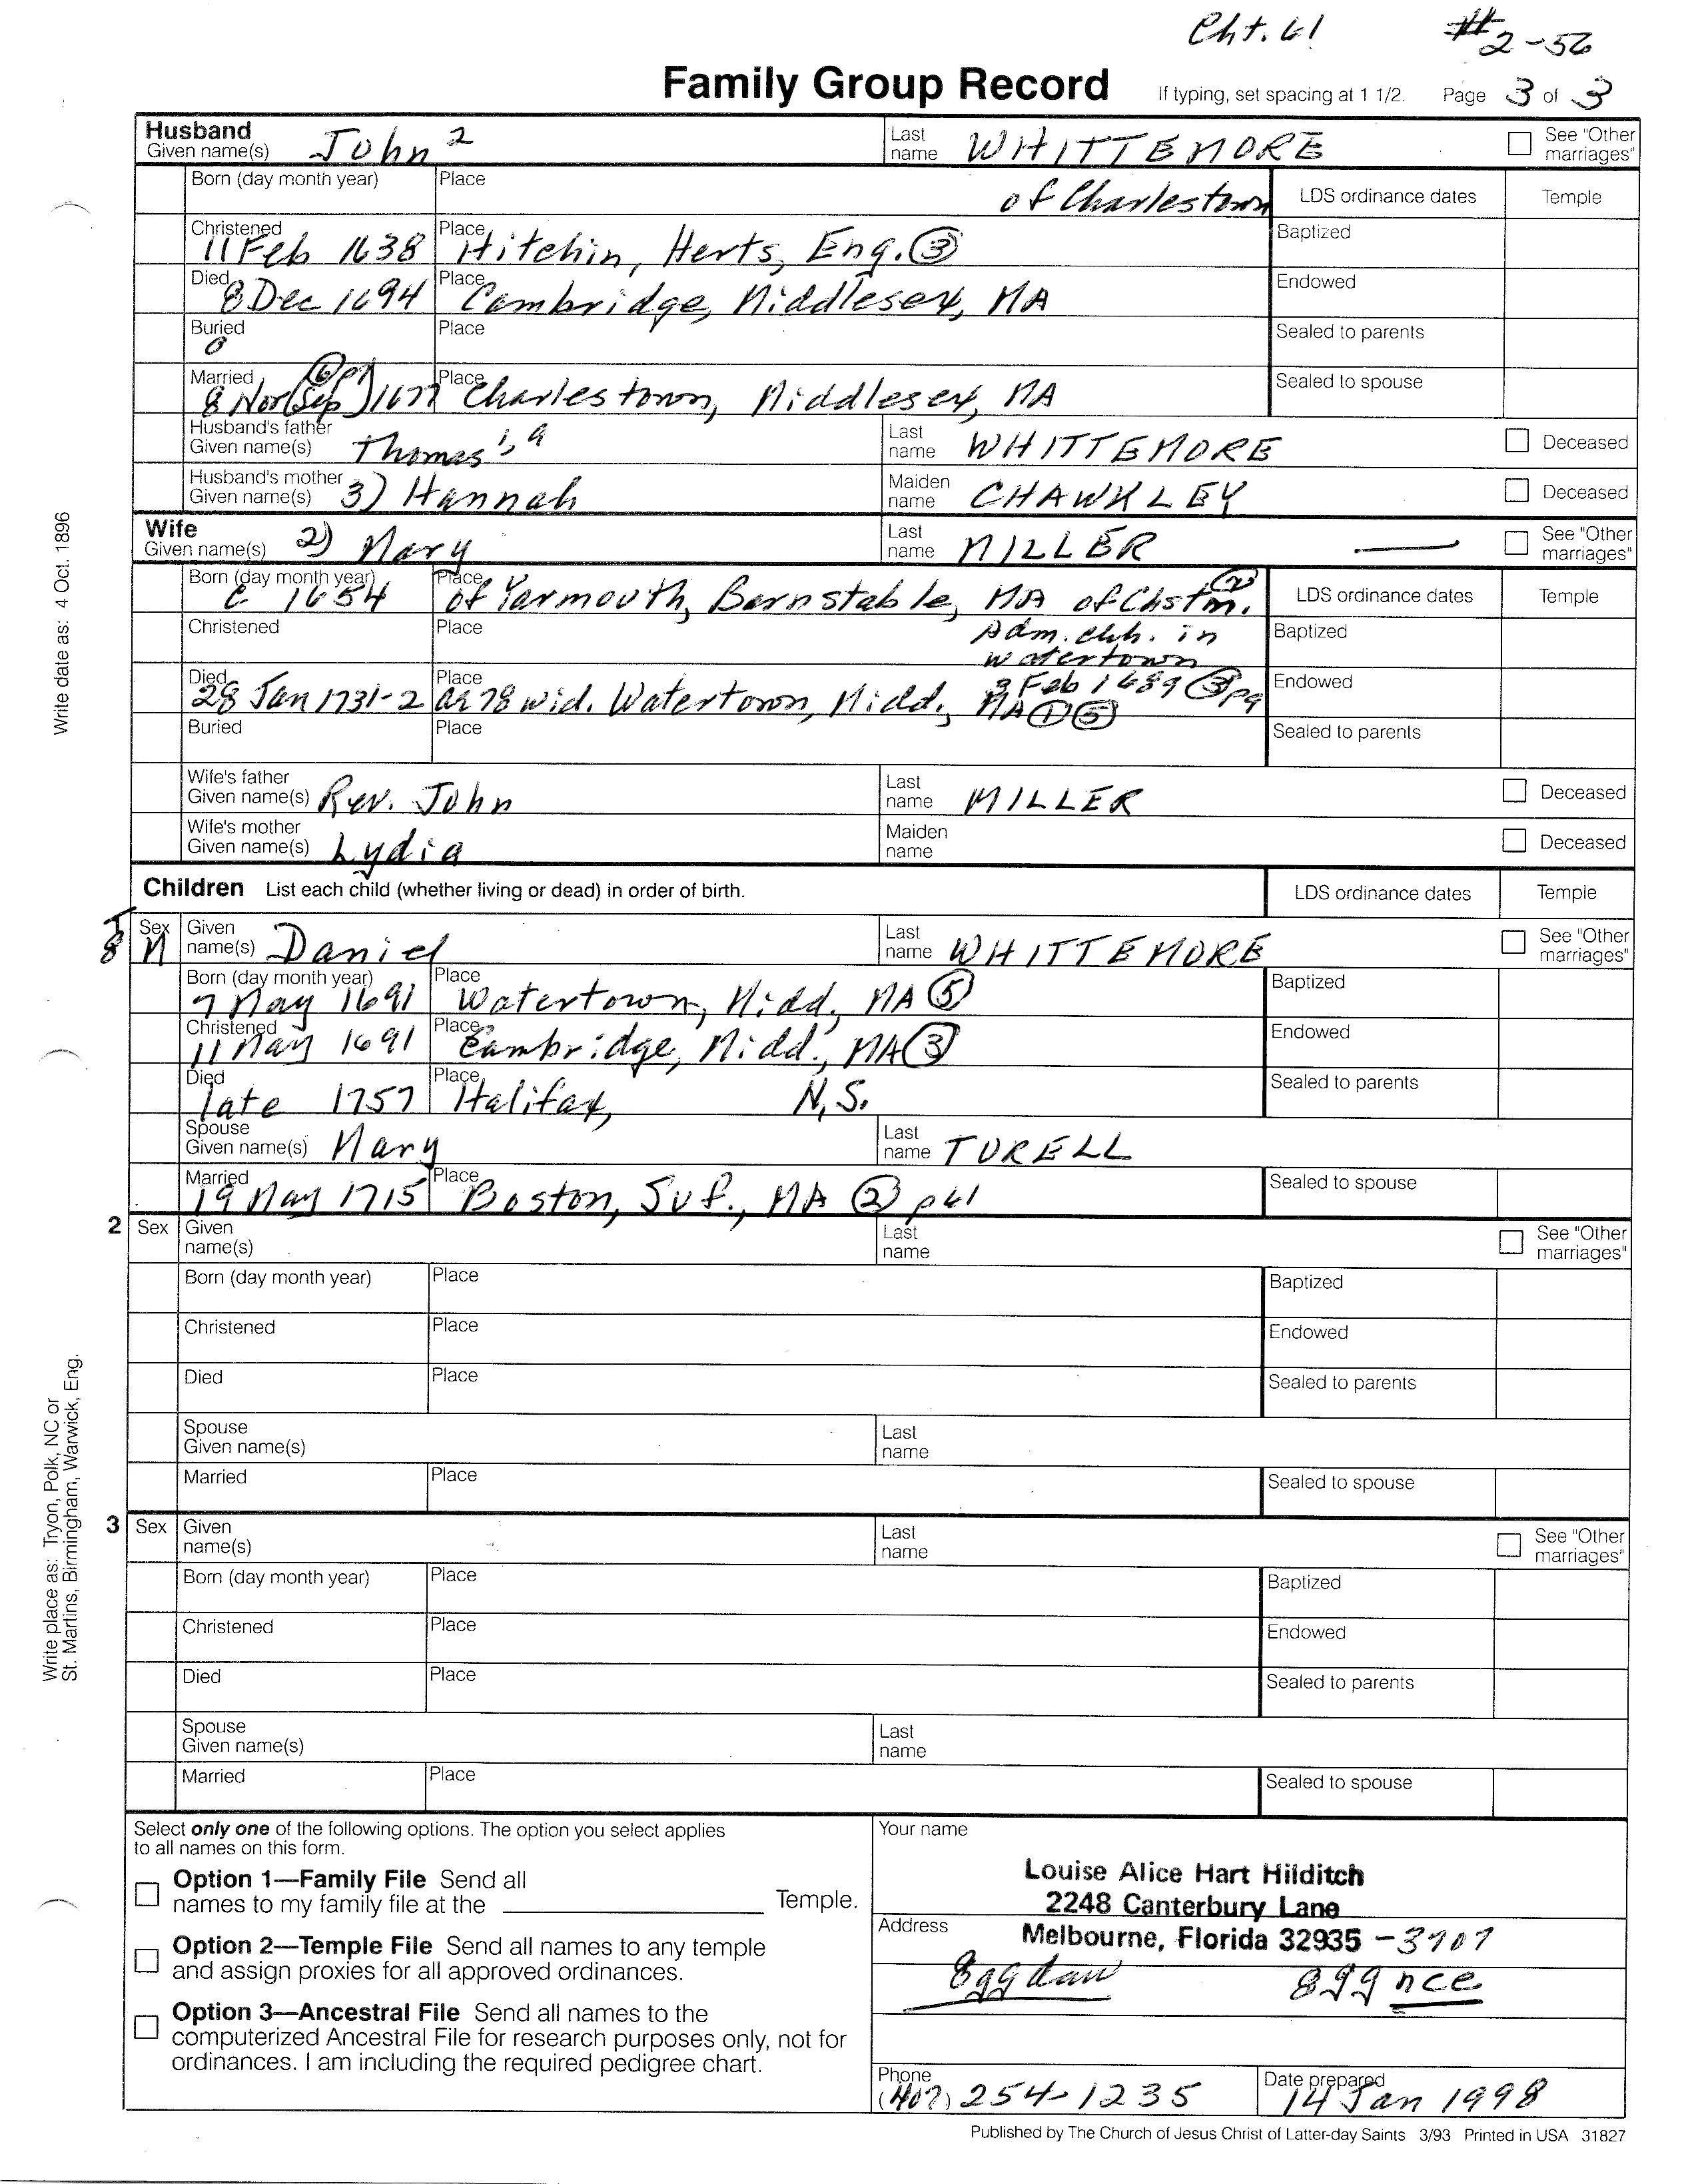 Cht. 61 #2-56
Family Group Record If typing, set spacing at 1 1/2. Page 3 of 3
Husband
Given name(s) John 2 Last name WHITTEMORE See "Other marriages"
Born (day month year) Place of Charlestown LDS ordinance dates Temple
Christened 11 Feb 1638 Place Hitchin, Herts, Eng. ③ Baptized
Died 8 Dec 1694 Place Cambridge, Middlesex, MA Endowed
Buried Place Sealed to parents
Married 8 Nov (Sep ⑥ p9) 1677 Place Charlestown, Middlesex, MA Sealed to spouse
Husband's father Given name(s) Thomas 1, 9 Last name WHITTEMORE Deceased
Husband's mother Given name(s) 3) Hannah Maiden name CHAWKLEY Deceased
Wife
Given name(s) 2) Mary Last name MILLER — See "Other marriages"
Born (day month year) C 1654 Place of Yarmouth, Barnstable, MA of Chstn. ② LDS ordinance dates Temple
Christened Place Adm. chh. in Watertown Baptized
Died 28 Jan 1731-2 Place ae 78 wid. Watertown, Midd., MA ① ⑤ 3 Feb 1689 ③ p9 Endowed
Buried Place Sealed to parents
Wife's father Given name(s) Rev. John Last name MILLER Deceased
Wife's mother Given name(s) Lydia Maiden name Deceased
Children List each child (whether living or dead) in order of birth. LDS ordinance dates Temple
8 Sex M Given name(s) Daniel Last name WHITTEMORE See "Other marriages"
Born (day month year) 7 May 1691 Place Watertown, Midd., MA ⑤ Baptized
Christened 11 May 1691 Place Cambridge, Midd., MA ③ Endowed
Died late 1757 Place Halifax, N.S. Sealed to parents
Spouse Given name(s) Mary Last name TURELL
Married 19 May 1715 Place Boston, Suf., MA ② p61 Sealed to spouse
2 Sex Given name(s) Last name See "Other marriages"
Born (day month year) Place Baptized
Christened Place Endowed
Died Place Sealed to parents
Spouse Given name(s) Last name
Married Place Sealed to spouse
3 Sex Given name(s) Last name See "Other marriages"
Born (day month year) Place Baptized
Christened Place Endowed
Died Place Sealed to parents
Spouse Given name(s) Last name
Married Place Sealed to spouse
Write date as: 4 Oct. 1896
Write place as: Tryon, Polk, NC or
St. Martins, Birmingham, Warwick, Eng.
Select only one of the following options. The option you select applies
to all names on this form.
Option 1—Family File Send all
names to my family file at the Temple.
Option 2—Temple File Send all names to any temple
and assign proxies for all approved ordinances.
Option 3—Ancestral File Send all names to the
computerized Ancestral File for research purposes only, not for
ordinances. I am including the required pedigree chart.
Your name
Louise Alice Hart Hilditch
2248 Canterbury Lane
Address Melbourne, Florida 32935 -3707
8gg dau 8gg nce
Phone (407) 254-1235 Date prepared 14 Jan 1998
Published by The Church of Jesus Christ of Latter-day Saints 3/93 Printed in USA 31827